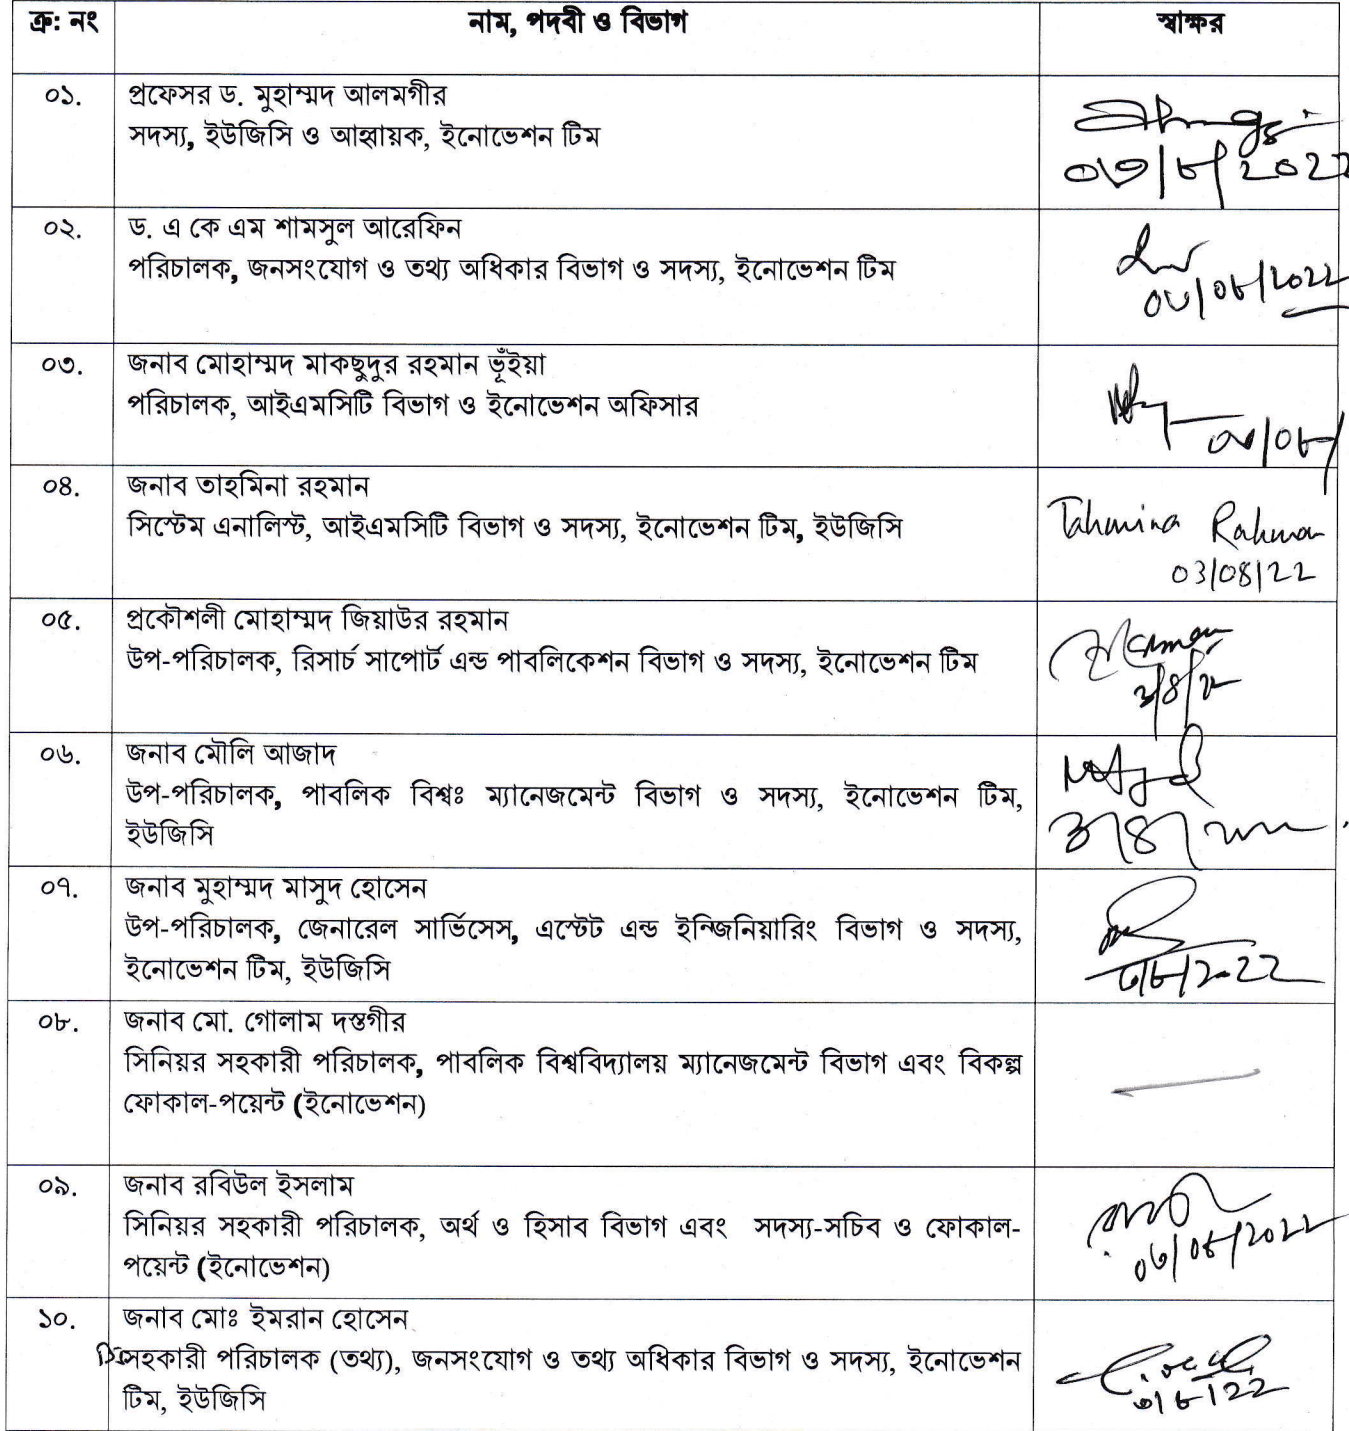 ক্র: নং নাম, পদবী ও বিভাগ স্বাক্ষর
০১. প্রফেসর ড. মুহাম্মদ আলমগীর
সদস্য, ইউজিসি ও আহ্বায়ক, ইনোভেশন টিম
০৩/৮/2022
০২. ড. এ কে এম শামসুল আরেফিন
পরিচালক, জনসংযোগ ও তথ্য অধিকার বিভাগ ও সদস্য, ইনোভেশন টিম
০৩/০৮/২০২২
০৩. জনাব মোহাম্মদ মাকছুদুর রহমান ভূঁইয়া
পরিচালক, আইএমসিটি বিভাগ ও ইনোভেশন অফিসার
০৪. জনাব তাহমিনা রহমান
সিস্টেম এনালিস্ট, আইএমসিটি বিভাগ ও সদস্য, ইনোভেশন টিম, ইউজিসি
Tahmina Rahman
03/08/22
০৫. প্রকৌশলী মোহাম্মদ জিয়াউর রহমান
উপ-পরিচালক, রিসার্চ সাপোর্ট এন্ড পাবলিকেশন বিভাগ ও সদস্য, ইনোভেশন টিম
০৬. জনাব মৌলি আজাদ
উপ-পরিচালক, পাবলিক বিশ্বঃ ম্যানেজমেন্ট বিভাগ ও সদস্য, ইনোভেশন টিম,
ইউজিসি
০৭. জনাব মুহাম্মদ মাসুদ হোসেন
উপ-পরিচালক, জেনারেল সার্ভিসেস, এস্টেট এন্ড ইন্জিনিয়ারিং বিভাগ ও সদস্য,
ইনোভেশন টিম, ইউজিসি
০৮. জনাব মো. গোলাম দস্তগীর
সিনিয়র সহকারী পরিচালক, পাবলিক বিশ্ববিদ্যালয় ম্যানেজমেন্ট বিভাগ এবং বিকল্প
ফোকাল-পয়েন্ট (ইনোভেশন)
০৯. জনাব রবিউল ইসলাম
সিনিয়র সহকারী পরিচালক, অর্থ ও হিসাব বিভাগ এবং সদস্য-সচিব ও ফোকাল-
পয়েন্ট (ইনোভেশন)
০৩/০৮/২০২২
১০. জনাব মোঃ ইমরান হোসেন
সহকারী পরিচালক (তথ্য), জনসংযোগ ও তথ্য অধিকার বিভাগ ও সদস্য, ইনোভেশন
টিম, ইউজিসি
৩/৮/22